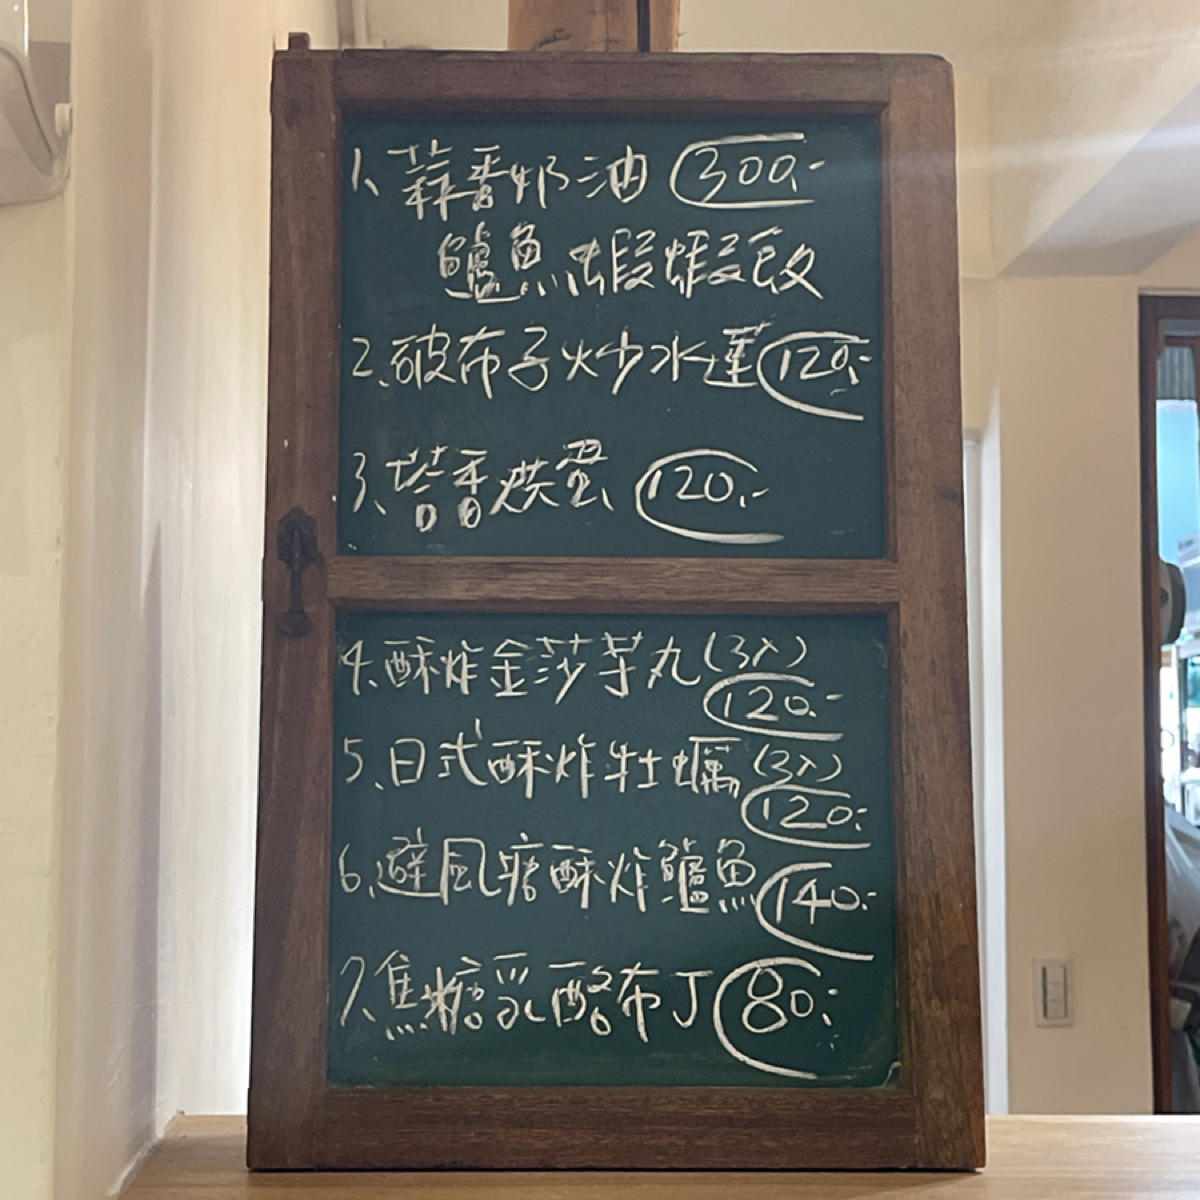 1、蒜香奶油 300.-
鱸魚蝦蝦飯
2、破布子炒水蓮 120.-
3、塔香烘蛋 120.-
4、酥炸金莎芋丸(3入)
120.-
5、日式酥炸牡蠣(3入)
120.-
6、避風塘酥炸鱸魚 140.-
7、焦糖乳酪布丁 80.-